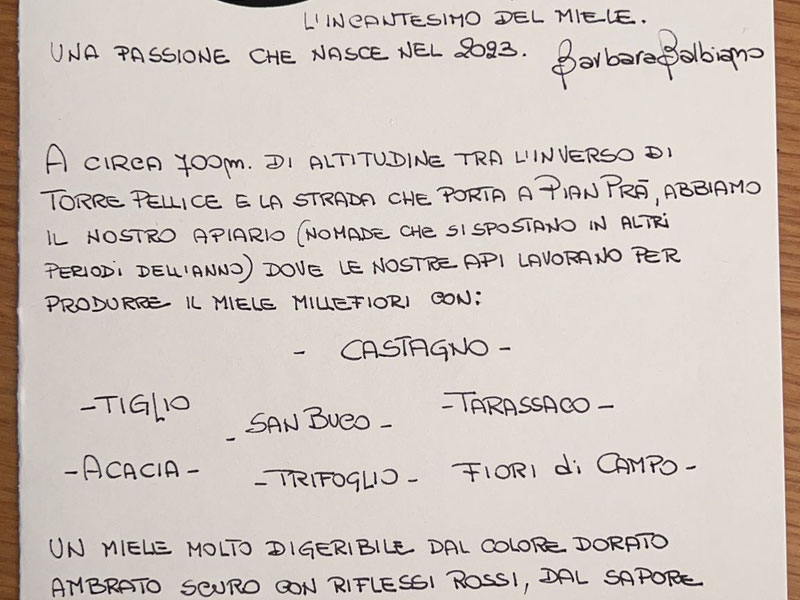 L'INCANTESIMO DEL MIELE.
UNA PASSIONE CHE NASCE NEL 2023. Barbara Balbiano
A CIRCA 700m. DI ALTITUDINE TRA L'INVERSO DI
TORRE PELLICE E LA STRADA CHE PORTA A PIAN PRÀ, ABBIAMO
IL NOSTRO APIARIO (NOMADE CHE SI SPOSTANO IN ALTRI
PERIODI DELL'ANNO) DOVE LE NOSTRE API LAVORANO PER
PRODURRE IL MIELE MILLEFIORI CON:
- CASTAGNO -
- TIGLIO - SAN BUCO - - TARASSACO -
- ACACIA - - TRIFOGLIO - FIORI di CAMPO -
UN MIELE MOLTO DIGERIBILE DAL COLORE DORATO
AMBRATO SCURO CON RIFLESSI ROSSI, DAL SAPORE